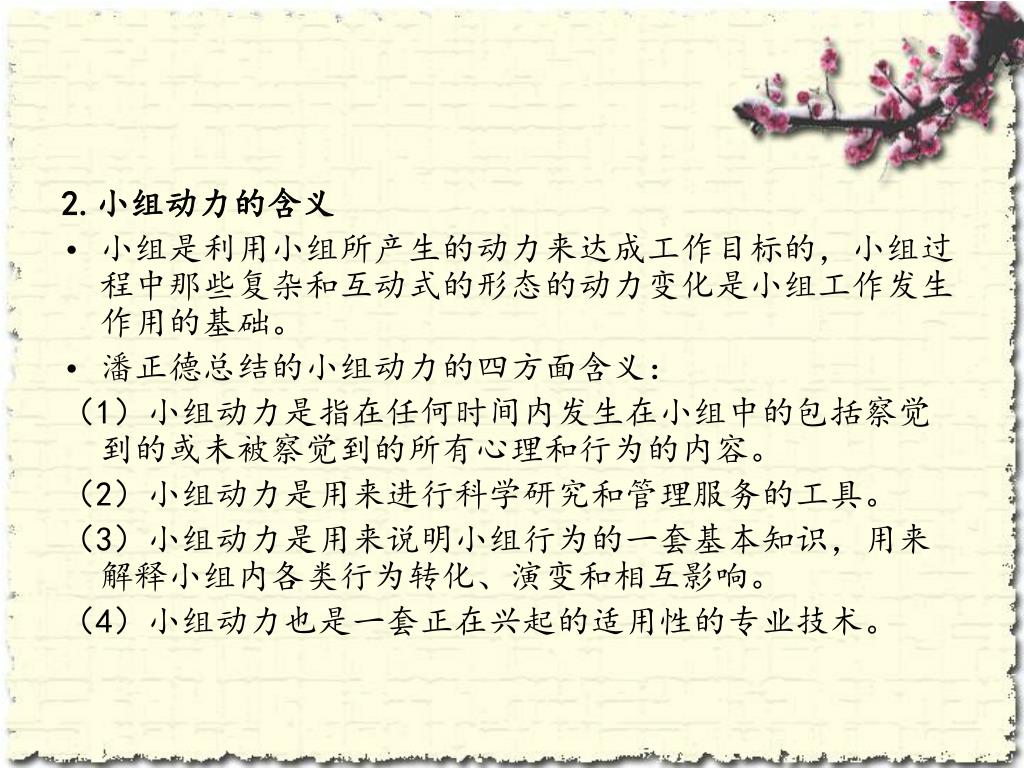 2.小组动力的含义
• 小组是利用小组所产生的动力来达成工作目标的，小组过
程中那些复杂和互动式的形态的动力变化是小组工作发生
作用的基础。
• 潘正德总结的小组动力的四方面含义：
（1）小组动力是指在任何时间内发生在小组中的包括察觉
到的或未被察觉到的所有心理和行为的内容。
（2）小组动力是用来进行科学研究和管理服务的工具。
（3）小组动力是用来说明小组行为的一套基本知识，用来
解释小组内各类行为转化、演变和相互影响。
（4）小组动力也是一套正在兴起的适用性的专业技术。